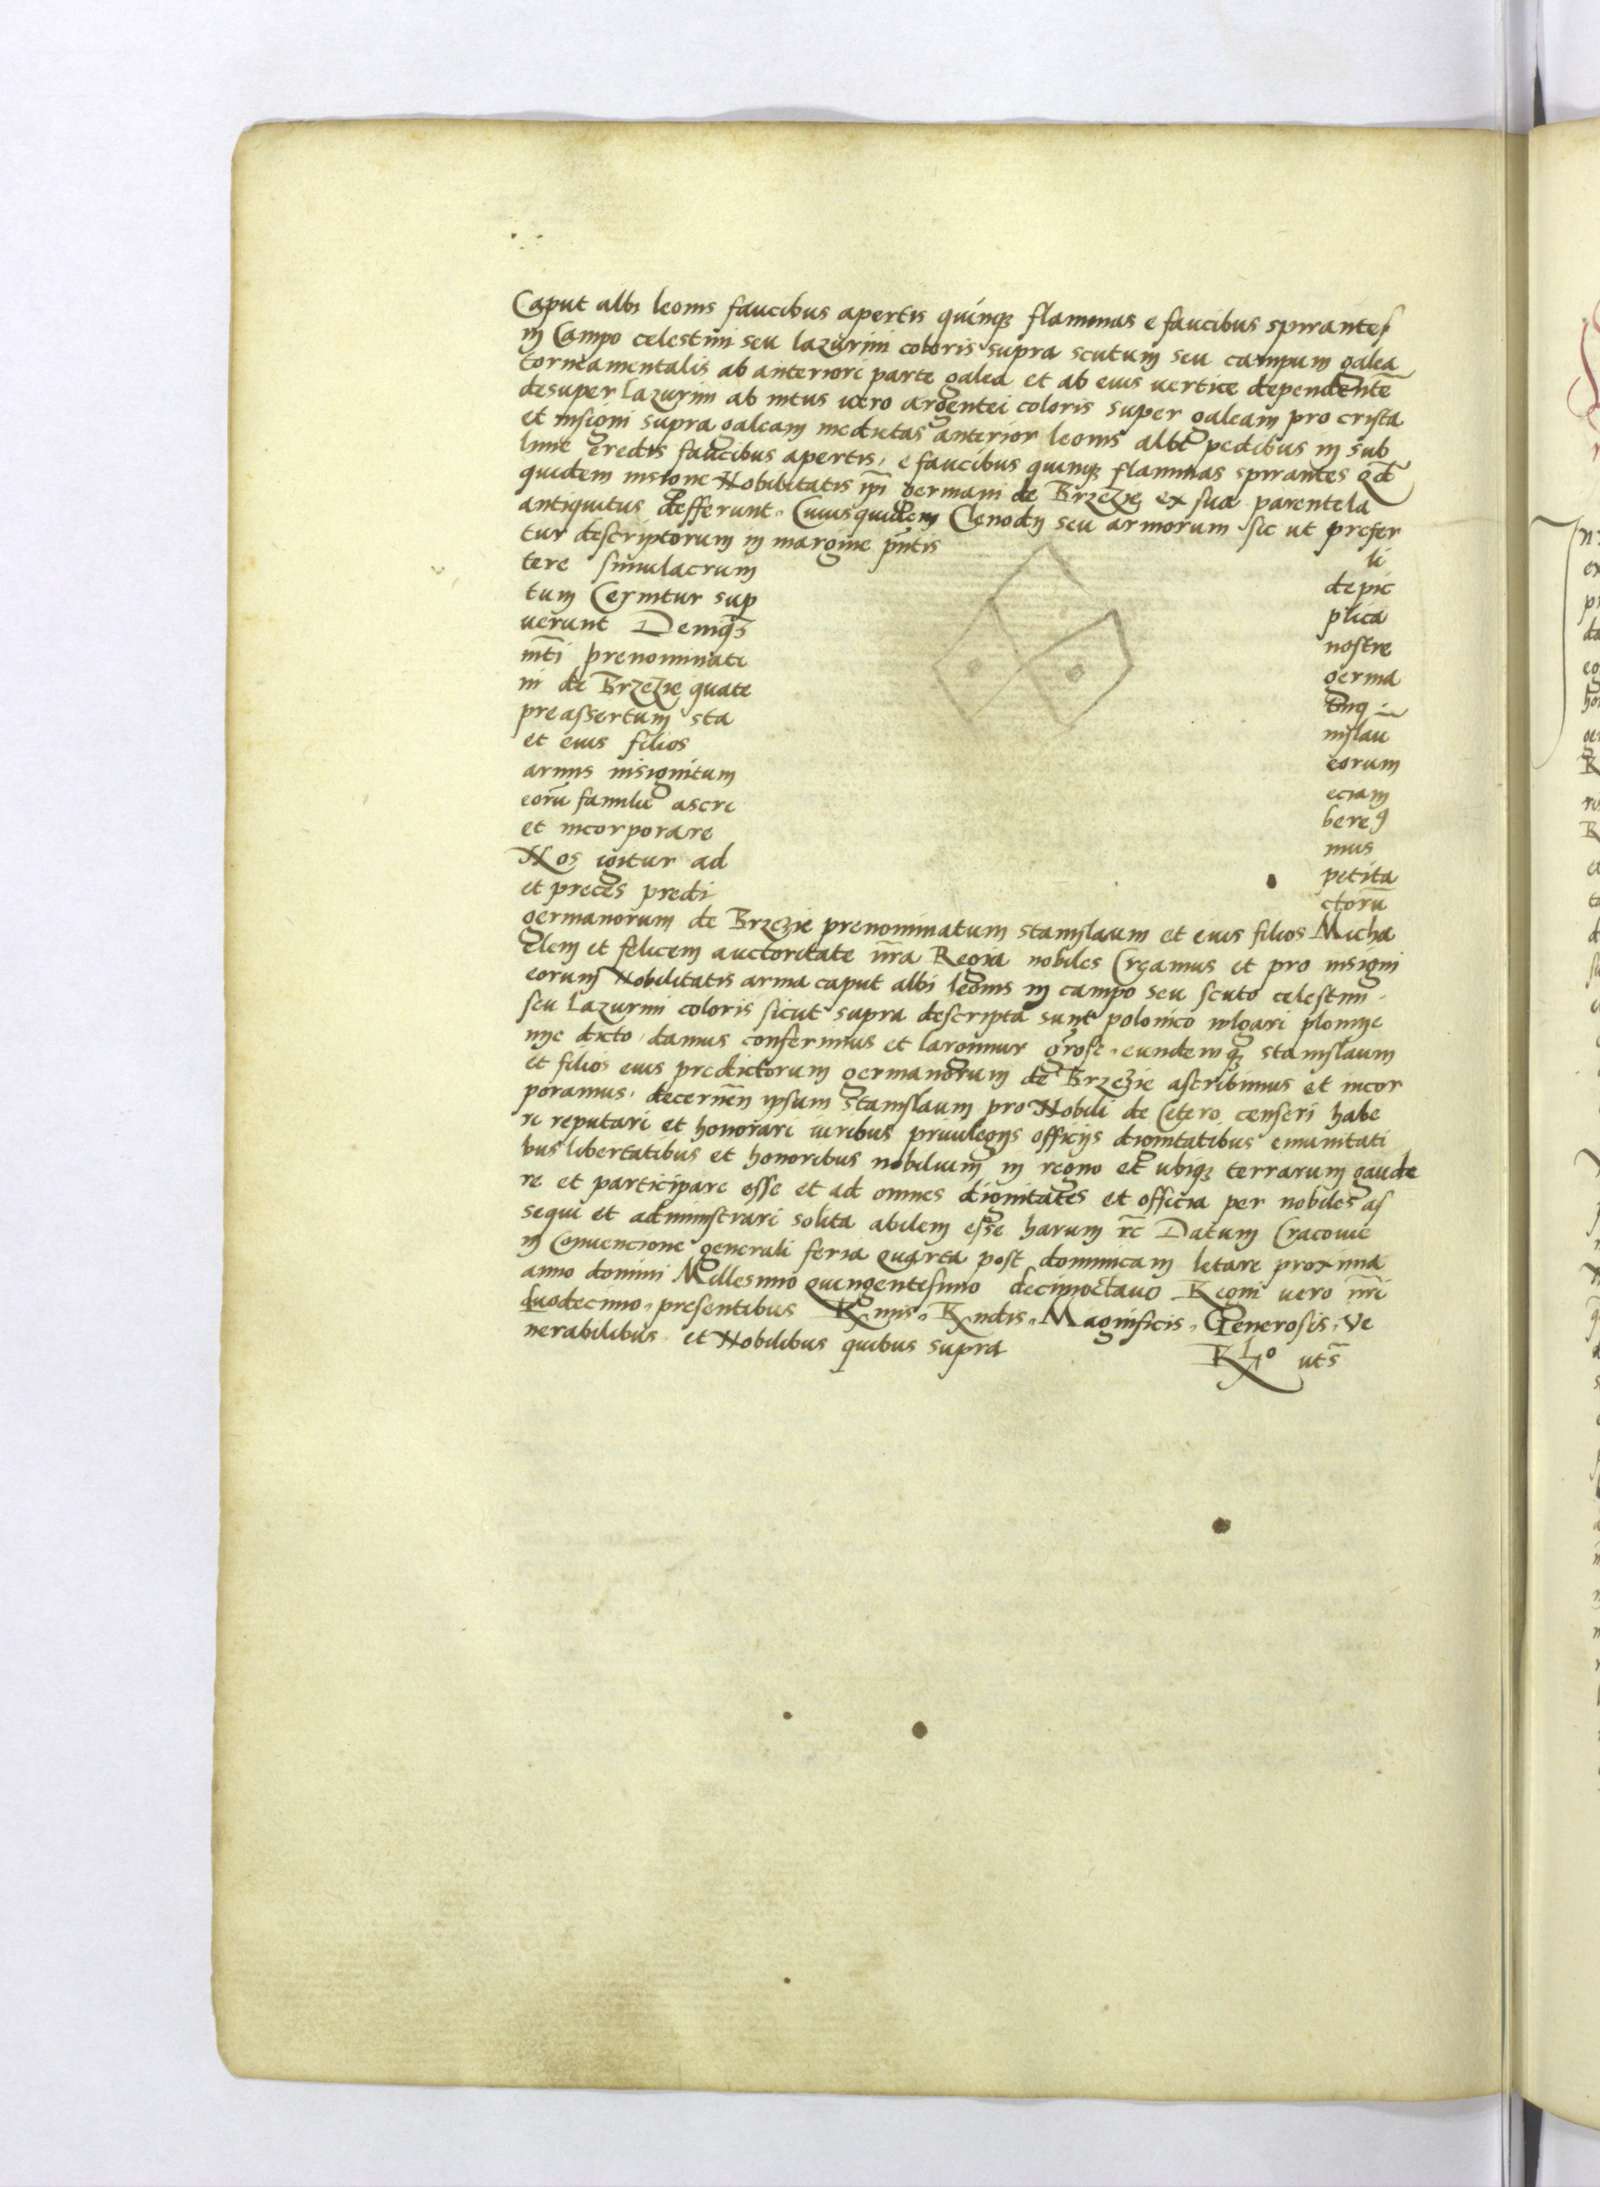 Caput albi leonis faucibus apertis quinqʒ flammas e faucibus spirantes
in Campo celestini seu lazurini coloris supra scutum seu campum galea
torneamentalis ab anteriore parte galea et ab eius vertice dependente
desuper lazurini ab intus vero argentei coloris super galeam pro crista
et insigni supra galeam medietas anterior leonis albi pedibus in sub
lime erectis faucibus apertis, e faucibus quinqʒ flammas spirantes qd̄
quidem insigne Nobilitatis ip̄i germani de Brzezie ex sua parentela
antiquitus defferunt. Cuiusquidem Clenodij seu armorum sic ut prefer
tur descriptorum in margine p̄ntis
tere simulacrum li
tum Cernitur sup depic
verunt Deniqʒ plica
m̄ti prenominati nostre
ni de Brzezie quate germa
preassertum sta
et eius filios nislau
armis insignitum eorum
eorū familie ascri eciam
et incorporare bereꝰ
Nos igitur ad mus
et preces predi petita
germanorum de Brzezie prenominatum stanislaum et eius filios Micha ctorū
elem et felicem auctoritate n̄ra Regia nobiles Creamus et pro insigni
eorum Nobilitatis arma caput albi leonis in campo seu scuto celestini
seu Lazurini coloris sicut supra descripta sunt polonico vulgari plomye
nye dicto, damus conferimus et largimur gr̄ose, eundemqʒ stanislaum
et filios eius predictorum germanorum de Brzezie ascribimus et incor
poramus, decernen̄ ipsum stanislaum pro Nobili de Cetero censeri habe
ri reputari et honorari iuribus privilegijs officijs dignitatibus emunitati
bus libertatibus et honoribus nobilium in regno et ubiqʒ terrarum gaude
re et participare esse et ad omnes dignitates et officia per nobiles as
sequi et administrari solita abilem esse harum rc̄ Datum Cracovie
in Convencione generali feria quarta post dominicam letare proxima
anno domini Millesimo quingentesimo decimoctavo Regni vero n̄ri
duodecimo, presentibus R. mis, R. ndis, Magnificis, Generosis, Ve
nerabilibus et Nobilibus quibus supra uts̄